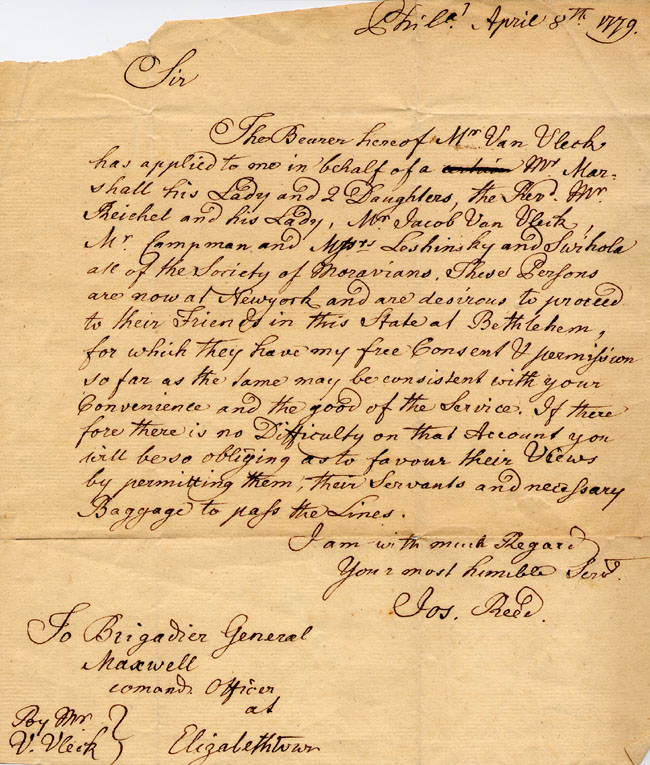 Phila. April 8th. 1779.
Sir
The Bearer hereof Mr. Van Vleck
has applied to me in behalf of a certain Mr. Mar-
shall his Lady and 2 Daughters, the Revd. Mr.
Reichel and his Lady, Mr. Jacob Van Vleck,
Mr. Campman and Messrs Loshinsky and Swihola
all of the Society of Moravians. These Persons
are now at Newyork and are desirous to proceed
to their Friends in this State at Bethlehem,
for which they have my free Consent & permission
so far as the same may be consistent with your
Convenience and the good of the Service. If there
fore there is no Difficulty on that Account you
will be so obliging as to favour their Views
by permitting them, their Servants and necessary
Baggage to pass the Lines.
I am with much Regard
Your most humble Servt.
Jos. Reed.
To Brigadier General
Maxwell
comandg Officer
at
Elizabethtown
By Mr.
V. Vleck